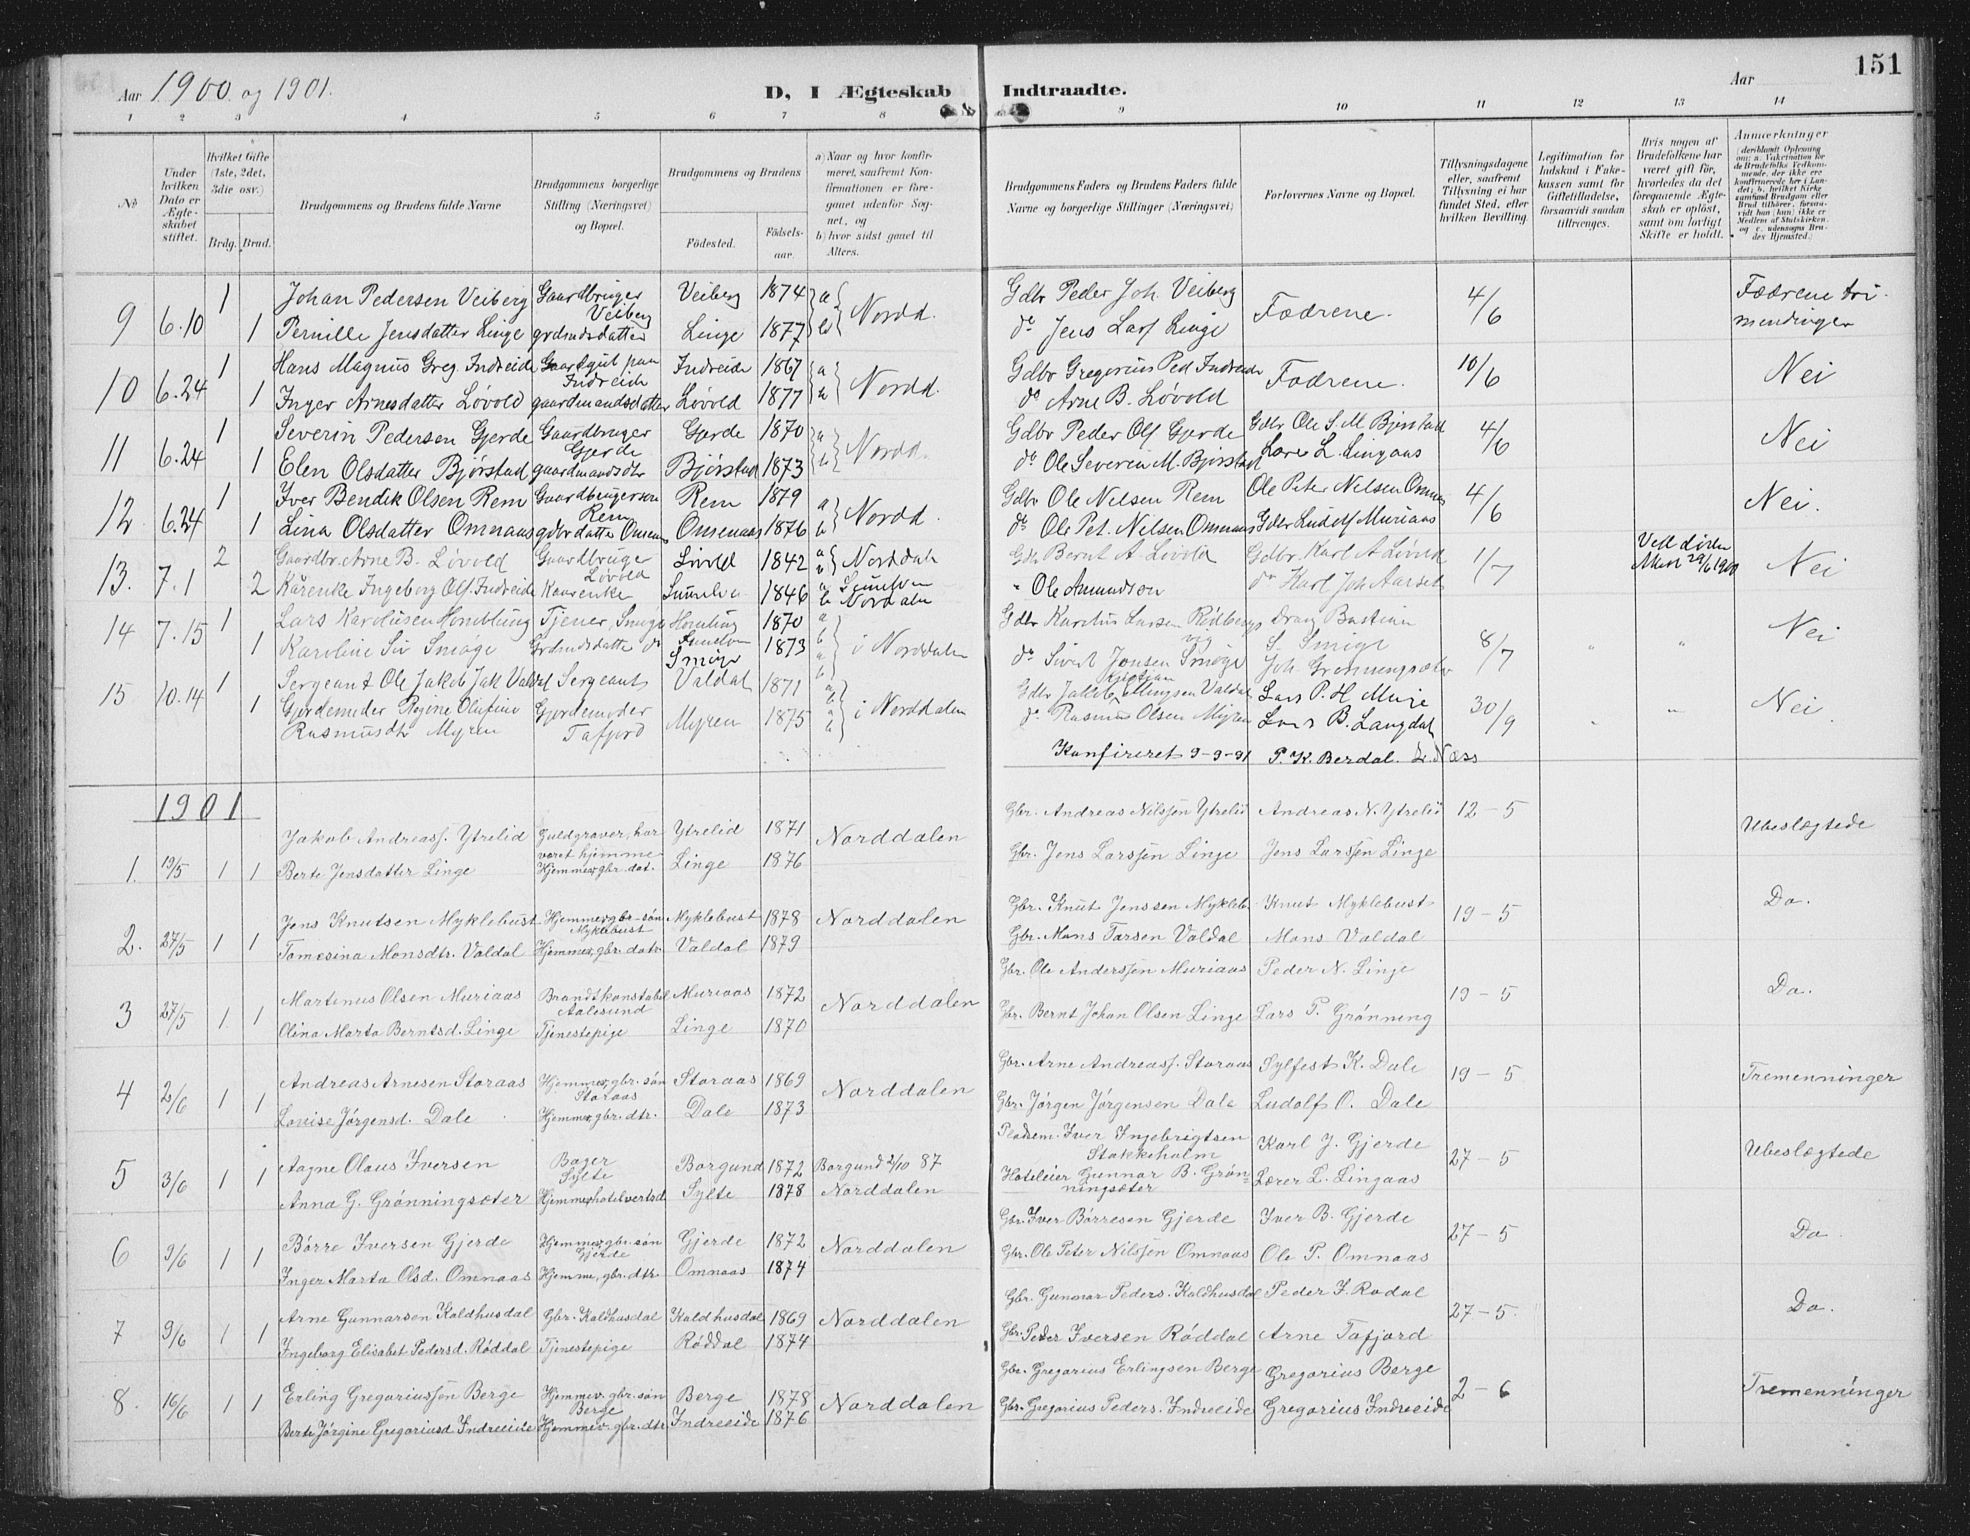 Aar 1900 og 1901.
D, I Ægteskab Indtraadte.
Aar
151
1 2 3 4 5 6 7 8 9 10 11 12 13 14
No
Under hvilken Dato er Ægteskabet stiftet.
Hvilket Gifte (1ste, 2det, 3die osv.)
Brdg. Brud.
Brudgommens og Brudens fulde Navne
Brudgommens borgerlige Stilling (Næringsvei) og Bopæl.
Brudgommens og Brudens
Fødested.
Fødselsaar.
a) Naar og hvor konfirmeret, saafremt Konfirmationen er foregaaet udenfor Sognet, og
b) hvor sidst gaaet til Alters.
Brudgommens Faders og Brudens Faders fulde Navne og borgerlige Stillinger (Næringsvei)
Forlovernes Navne og Bopæl.
Tillysningsdagene eller, saafremt Tillysning ei har fundet Sted, efter hvilken Bevilling.
Legitimation for Indskud i Fakekassen samt for Giftetilladelse, forsaavidt saadan tiltrænges.
Hvis nogen af Brudefolkene har været gift før, hvorledes da det foregaaende Ægteskab er opløst, samt om lovligt Skifte er holdt.
Anmærkninger
9 6.10 1 Johan Pedersen Veiberg Gaardbruger Veiberg Veiberg 1874 a Nordd. Gdbr Peder Joh. Veiberg Fædrene. 4/6 Fædrene tri-
1 Pernille Jensdatter Linge grdmdsdatter Linge 1877 b do Jens Lars Linge mendinger
10 6.24 1 Hans Magnus Greg. Indreide Gaardgut paa Indreide Indreide 1867 a Nordd. Gdbr Gregorius Ped Indreide Fædrene. 10/6 Nei
1 Inger Arnesdatter Løvold gaardmandsdatter Løvold 1877 b do Arne B. Løvold
11 6.24 1 Severin Pedersen Gjerde Gaardbruger Gjerde Gjerde 1870 a Nordd. Gdbr Peder Ols Gjerde Gdbr Ole S. M Bjørstad 4/6 Nei
1 Elen Olsdatter Bjørstad gaardmandsdtr Bjørstad 1873 b do Ole Severin M. Bjørstad Lærer L. Lingaas
12 6.24 1 Iver Bendik Olsen Rem Gaardbrugersøn Rem Rem 1879 a Nordd. Gdbr Ole Nilsen Rem Ole Peter Nilsen Omnes 4/6 Nei.
1 Lina Olsdatter Omnaas gdbrdatter Omnaas Omenaas 1876 b do Ole Pet. Nilsen Omnaas Gdbr Ludolf Muriaas
13. 7.1 2 Gaardbr. Arne B. Løvold Gaardbruge Løvold Løvold 1842 a b Norddalen Gdbr Bernt A Løvold Gdbr. Karl A Løvold 1/7 Ved døden Nei
2 Kårenke Ingeborg Ols. Indreide Kaarenke Sunelven 1846 a Sunelven b Norddalen " Ole Amundson do Karl Joh Aarset
14 7.15 1 Lars Karolusen Homblung Tjener, Smøge Homlung 1870 a b i Norddalen Gdbr Karolus Larsen Rødbergvig Drag Bastian S. Smøge 8/7 " " Nei
1 Karoline Siv Smøge Grdmdsdatter do Sunelven Smøge 1873 a b do Sivert Jonsen Smøge Joh. Grønningsæter
15 10.14 1 Sergeant Ole Jakob Jak Valdal Sergeant Valdal 1871 a b i Norddalen Gdbr Jakob Valdal Lars P. H. Murje 30/9 " " Nei.
1 Gjordemoder Regine Olufine Rasmusdtr Myren Gjordemoder Tafjord Myren 1875 a b do Rasmus Olsen Myren Lars B. Langdal
Konfireret 9-9-91 P. K. Berdal. L. Næss
1901
1. 19/5 1 1 Jakob Andreass. Ytrelid Guldgraver, har været hjemme Ytrelid 1871 Norddalen Gbr. Andreas Nilssen Ytrelid Andreas N. Ytrelid 12-5 Ubeslægtede
Berte Jensdatter Linge Hjemmev, gbr. dat. Linge 1876 Gbr. Jens Larssen Linge Jens Larssen Linge
2. 27/5 1 1 Jens Knutsen Myklebust Hjemmev, gbr-søn Myklebust Myklebust 1878 Norddalen Gbr. Knut Jenssen Mykleb. Knut Myklebust 19-5 Do.
Tomesina Monsdtr. Valdal Hjemmev, gbr. datr. Valdal 1879 Gbr. Mons Tarsen Valdal Mons Valdal
3 27/5 1 1 Martinus Olsen Muriaas Brandtkonstabel Aalesund Muriaas 1872 Norddalen Gbr. Ole Anderssen Muriaas Peder N. Linge 19-5 Do.
Olina Marta Berntsd. Linge Tjenestepige Linge 1870 Gbr. Bernt Johan Olsen Linge Lars P. Grønning
4 2/6 1 1 Andreas Arnesen Storaas Hjemmev, gbr. søn Storaas Storaas 1869 Norddalen Gbr. Arne Andreass. Storaas Sylfest K. Dale 19-5 Tremenninger
Lovise Jørgensd. Dale Hjemmev, gbr. dtr. Dale 1873 Gbr. Jørgen Jørgensen Dale Ludolf O. Dale
5 3/6 1 1 Aagne Olaus Iversen Bager Sylte Borgund 1872 Borgund 2/10 87 Pladsem. Iver Ingebrigtsen Stokkeholm Karl J. Gjerde 27-5 Ubeslægtede
Anna G. Grønningsæter Hjemmev, hotelvertsd. Sylte 1878 Norddalen Hoteleier Gunnar B. Grønningsæter Lærer L. Lingaas
6 9/6 1 1 Børre Iversen Gjerde Hjemmev, gbr. søn Gjerde Gjerde 1872 Norddalen Gbr. Iver Børresen Gjerde Iver B. Gjerde 27-5 Do.
Inger Marta Olsd. Omnaas Hjemme, gbr. dtr. Omnaas 1874 Gbr. Ole Peter Nilssen Omnaas Ole P. Omnaas
7 9/6 1 1 Arne Gunnarsen Kaldhusdal Gbr. Kaldhusdal Kaldhusdal 1869 Norddalen Gbr. Gunnar Peders. Kaldhusdal Peder I. Rødal 27-5 Do.
Ingeborg Elisabet Pedersd. Røddal Tjenestepige Røddal 1874 Gbr. Peder Iversen Røddal Arne Tafjord
8. 16/6 1 1 Erling Gregoriussen Berge Hjemmev. gbr. søn Berge Berge 1878 Norddalen Gbr. Gregorius Erlingsen Berge Gregorius Berge 2-6 Tremenninger
Berte Jørgine Gregoriusd Indreeide Hjemmev. gbr. dtr. Indreeide 1876 Gbr. Gregorius Peders. Indreeide Gregorius Indreeide